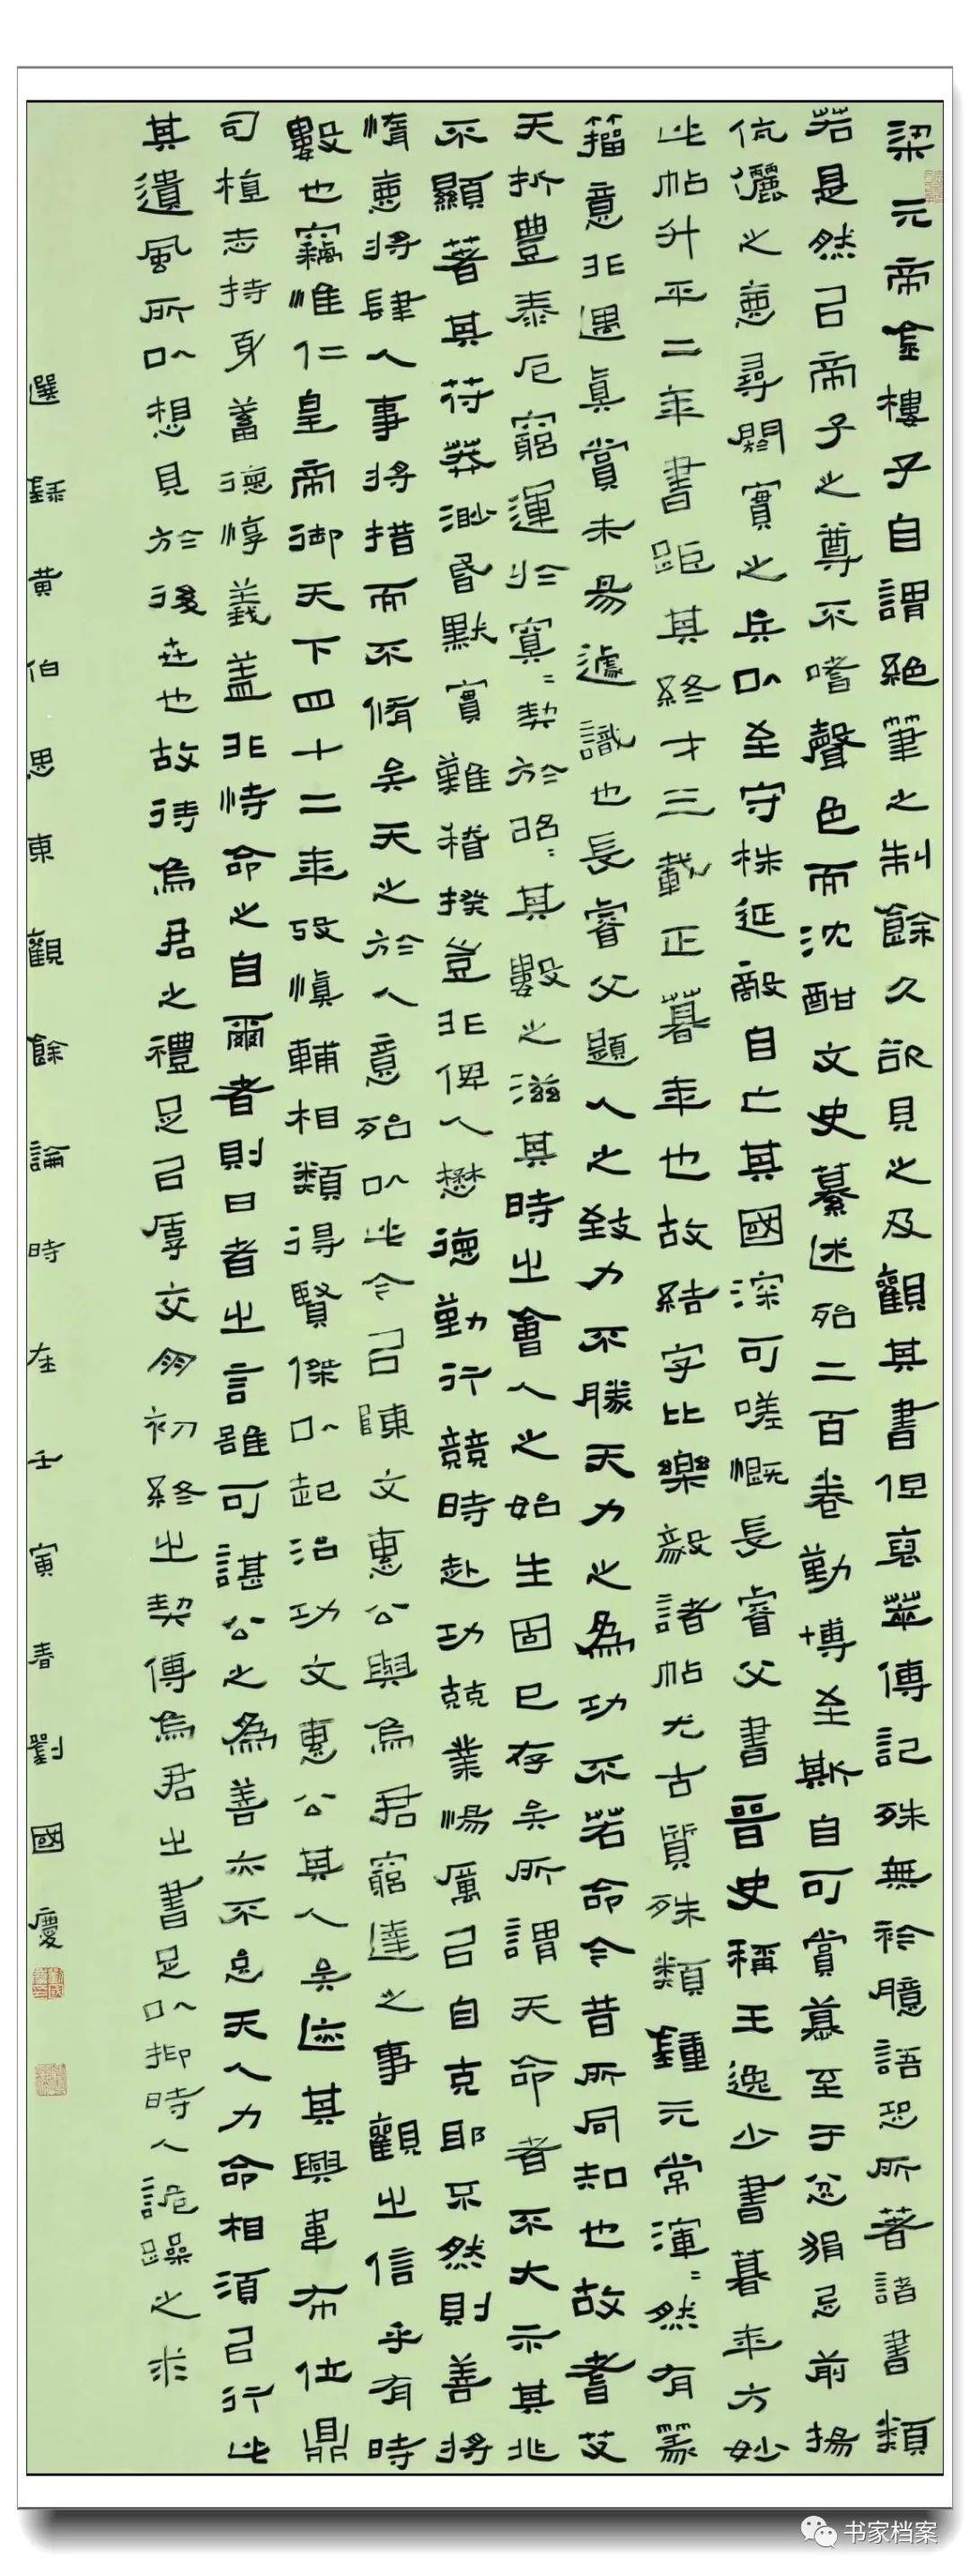 梁元帝金樓子自謂絕筆之制餘久欲見之及觀其書但裒萃傳記殊無衿臆語恐所著諸書類
若是然㠯帝子之尊不嗜聲色而沈酣文史纂述殆二百卷勤博至斯自可賞慕至于忿狷忌前揚
伉儷之悪尋鬩實之兵㕥至守株延敵自亡其國深可嗟慨長睿父書晉史稱王逸少書暮年方妙
此帖升平二年書距其終才三載正暮年也故結字比樂毅諸帖尤古質殊類鍾元常渾〻然有篆
籀意非遇真賞未易遽識也長睿父題人之致力不勝天力之為功不若命令昔所同知也故耆艾
夭折豐泰厄窮運於寞〻契於昭〻其數之滋其時出會人之始生固已存矣所謂天命者不大示其兆
不顯著其符莽渺昏默實難稽揆豈非俾人懋德勤行競時赴功兢業惕厲㠯自克耶不然則善將
惰悪將肆人事將措而不脩矣天之於人意殆㕥此今㠯陳文惠公與為君窮達之事觀出信乎有時
數也竊惟仁皇帝御天下四十二年攷慎輔相類得賢傑㕥起治功文惠公其人矣迹其興韋布位鼎
司植志持身蓄德惇義盖非恃命之自爾者則日者出言雖可諶公之為善亦不怠天人力命相須㠯行此
其遺風所㕥想見於後世也故待為君之禮足㠯厚交朋初終出契傳為君出書足㕥抑時人詭躁之求
選録黄伯思東觀餘論時在壬寅春劉國慶
书家档案